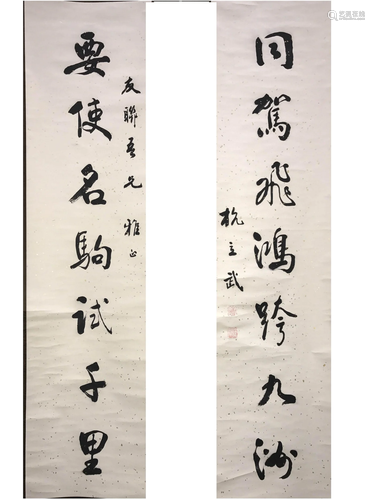 同駕飛鴻跨九洲
杭立武
要使名駒試千里
友聯吾兄 雅正